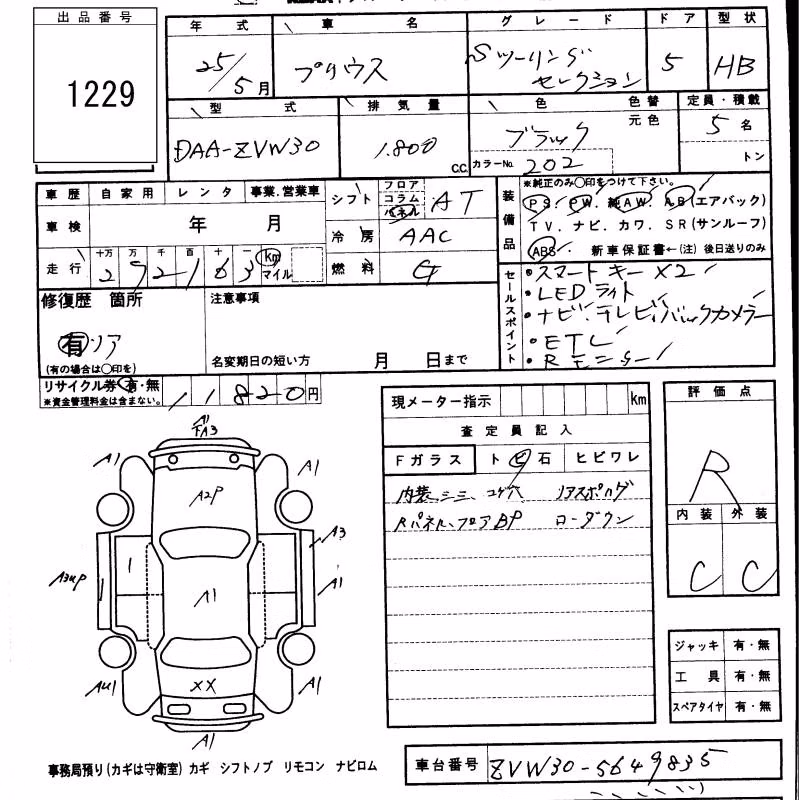 出品番号
1229
年式 車名 グレード ドア 型状
25/5月 プリウス Sツーリングセレクション 5 HB
型式 排気量 色 色替 元色 定員・積載
DAA-ZVW30 1.800 C.C. ブラック カラーNo. 202 5名 トン
車歴 自家用 レンタ 事業.営業車
車検 年 月
走行 十万 万 千 百 十 一 km マイル
292163
シフト フロア コラム パネル AT
冷房 AAC
燃料 G
装備品 ※純正のみ○印をつけて下さい。
PS. PW. 純AW. AB(エアバック)
TV. ナビ. カワ. SR(サンルーフ)
ABS. 新車保証書←(注) 後日送りのみ
修復歴 箇所
有 リア
(有の場合は○印を)
注意事項
名変期日の短い方 月 日まで
セールスポイント
・スマートキー×2
・LED ライト
・ナビ、テレビ、バックカメラー
・ETC
・Rモニター
リサイクル券 有・無 11820円
※資金管理料金は含まない。
現メーター指示 km
査定員記入
Fガラス トビ石 ヒビワレ
内装シミ コゲ穴 リアスポハゲ
Rパネル、フロアBP ローダウン
評価点
R
内装 外装
C C
ジャッキ 有・無
工具 有・無
スペアタイヤ 有・無
A1
FA3
A1 A1
A2P
A3
A3UP 1 A1 A1
AU1 XX A1
A1
事務局預り(カギは守衛室) カギ シフトノブ リモコン ナビロム
車台番号 ZVW30-5649835